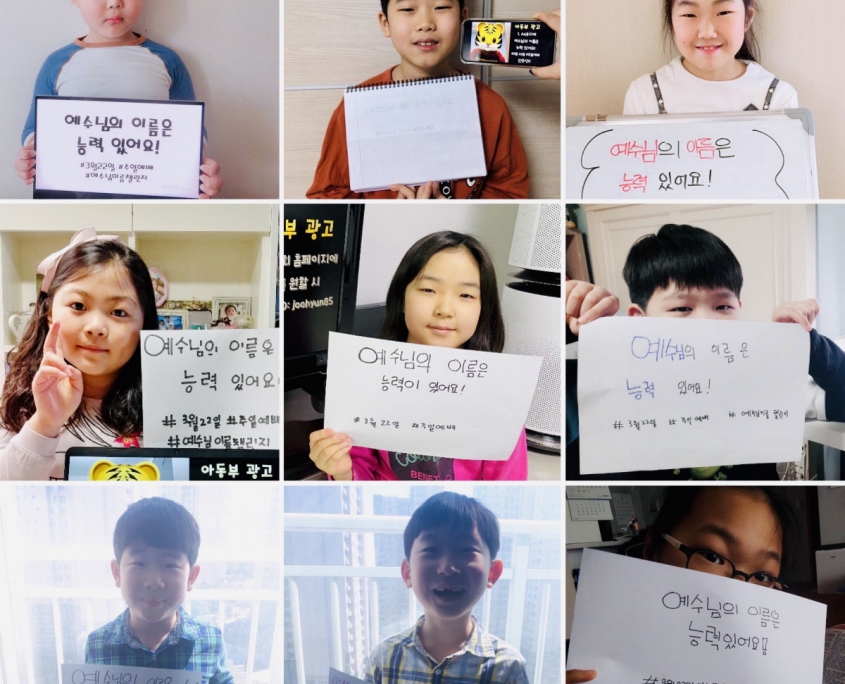 예수님의 이름은
능력 있어요!
#3월22일, #주일예배
#예수님이름챌린지
아동부 광고
예수님의 이름은
능력 있어요!
예수님의 이름은
능력 있어요
# 3월22일 #주일예배
#예수님이름챌린지
아동부 광고
부 광고
홈페이지에
원할 시
joohyun85
예수님의 이름은
능력이 있어요!
# 3월 22일 #주일예배
BENE
예수님의 이름은
능력 있어요!
# 3월22일 # 주일예배 #
예수님의 이름
예수님의 이름은
능력있어요!